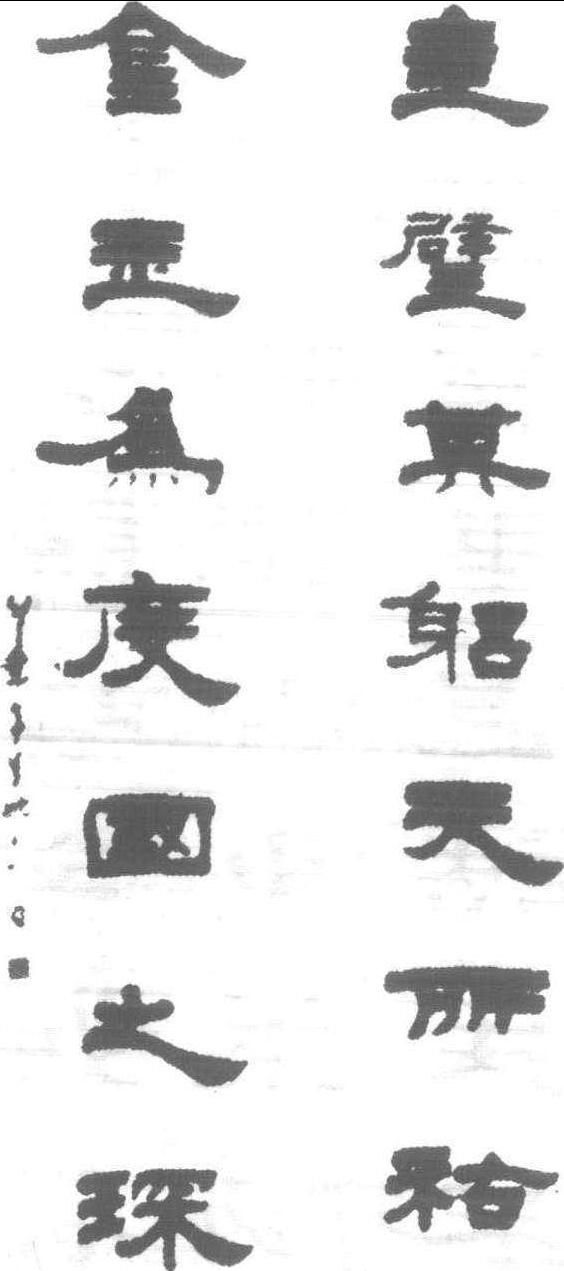 圭璧其躳天所祐
金玉為度國之琛